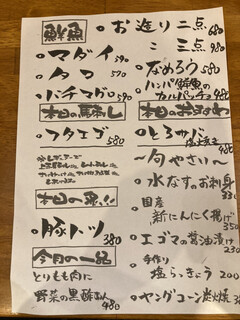 鮮魚
お造り二点 680
〃 三点 980
マダイ 590
タコ 590
バチマグロ 590
なめろう 580
カルパッチョ 480
本日の蒸し
フタエゴ 580
本日の
とろサバ
塩焼き
480
〜旬やさい〜
水なすのお刺身
330
国産
新にんにく揚げ
350
エゴマの醤油漬け
230
手作り
塩らっきょう 200
ヤングコーン炭焼
本日の
豚トツ
380
今月の一品
とりもも肉に
野菜の黒酢あん
480